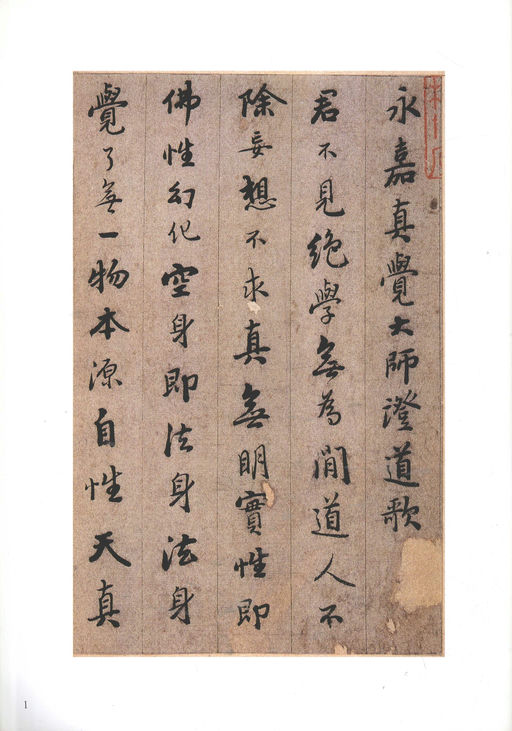 永嘉真覺大師澄道歌
君不見絕學無為閒道人不
除妄想不求真無明實性即
佛性幻化空身即法身法身
覺了無一物本源自性天真
1